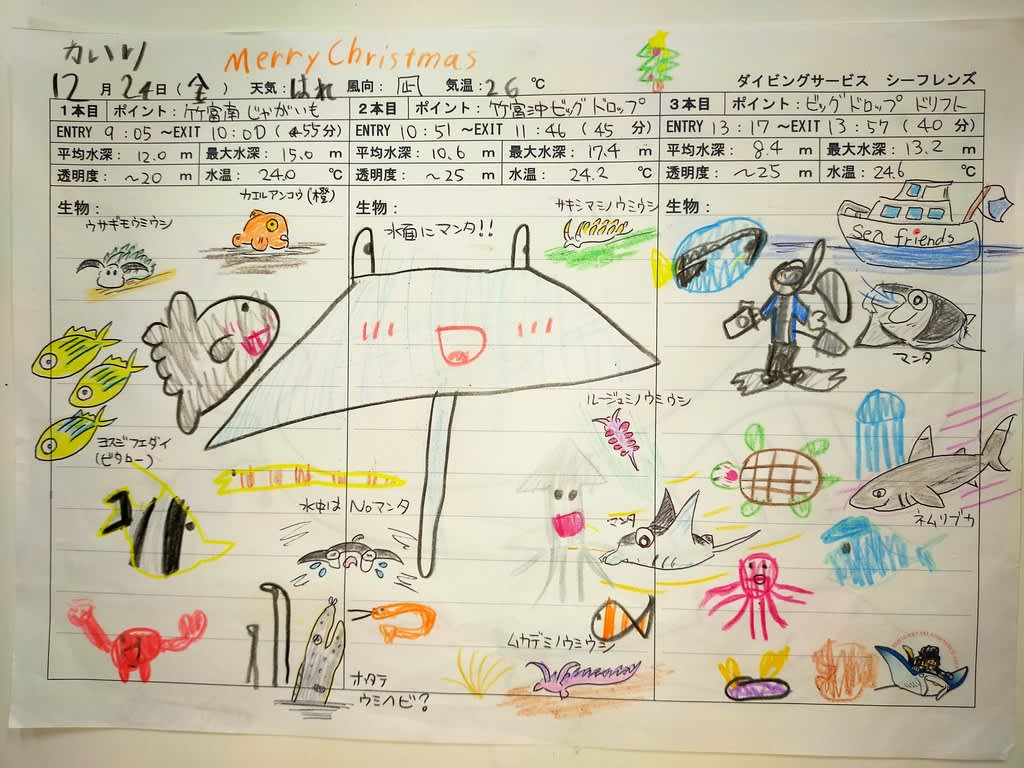 かいり Merry Christmas
12月24日(金) 天気:はれ 風向:凪 気温:26℃ ダイビングサービス シーフレンズ
1本目 ポイント:竹富南じゃがいも
ENTRY 9:05~EXIT 10:00(55分)
平均水深:12.0 m 最大水深:15.0 m
透明度:~20 m 水温:24.0 ℃
生物:
カエルアンコウ(橙)
ウサギモウミウシ
ヨスジフエダイ
(ビタロー)
2本目 ポイント:竹富沖ビッグドロップ
ENTRY 10:51~EXIT 11:46(45 分)
平均水深:10.6 m 最大水深:17.4 m
透明度:~25 m 水温:24.2 ℃
生物:
サキシマミノウミウシ
水面にマンタ!!
ルージュミノウミウシ
水中は Noマンタ
マンタ
ムカデミノウミウシ
ウミヘビ?
3本目 ポイント:ビッグドロップ ドリフト
ENTRY 13:17~EXIT 13:57(40 分)
平均水深:8.4 m 最大水深:13.2 m
透明度:~25 m 水温:24.6 ℃
生物:
Sea friends
マンタ
ネムリブカ